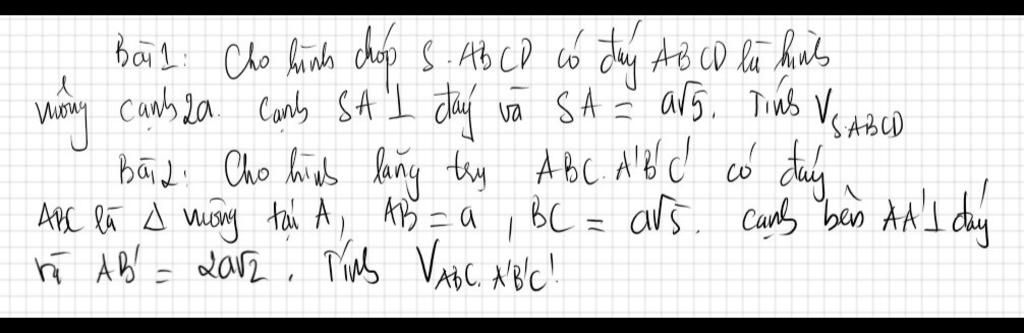 Bài 1: Cho hình chóp S.ABCD có đáy ABCD là hình
vuông cạnh 2a. Cạnh SA ⊥ đáy và SA = a√5. Tính V_{S.ABCD}
Bài 2: Cho hình lăng trụ ABC.A'B'C' có đáy
ABC là Δ vuông tại A, AB = a, BC = a√5. cạnh bên AA' ⊥ đáy
và AB' = 2a√2. Tính V_{ABC.A'B'C'}